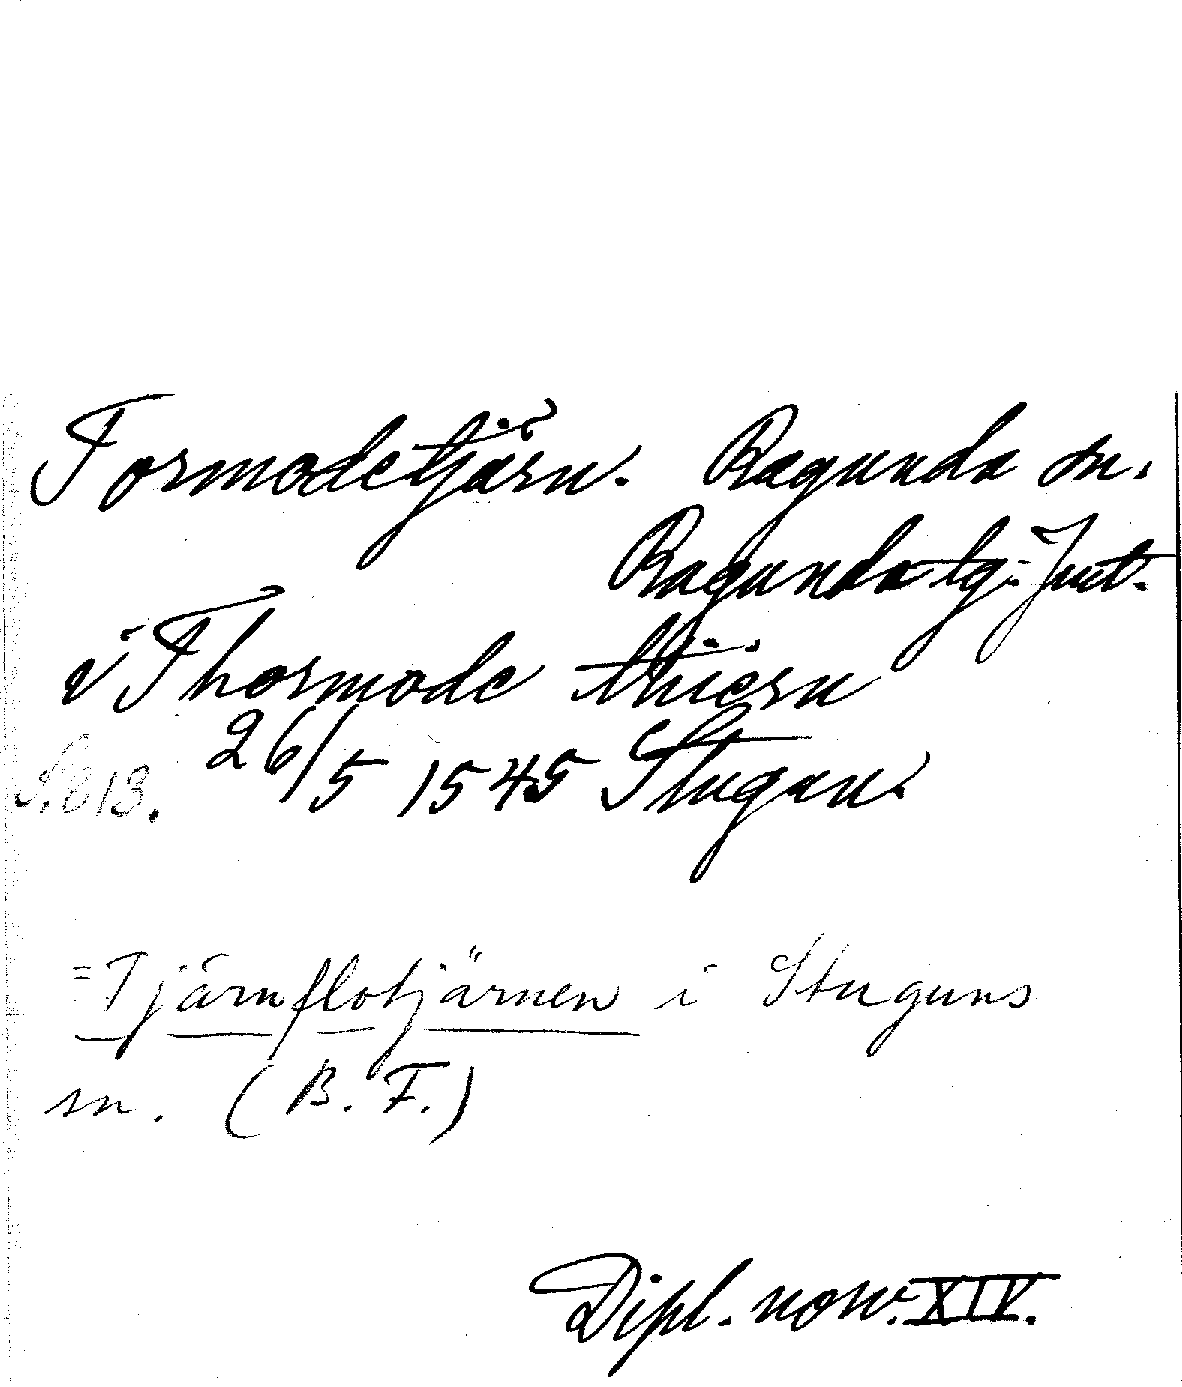 Tormodetjärn. Ragunda sn.
Ragunda tg. Jmt.
i Thormode thiërn
S. 813. 26/5 1545 Stugan.
=Tjärnflotjärnen i Stuguns
sn. (B. F.)
Dipl. norv. XIV.